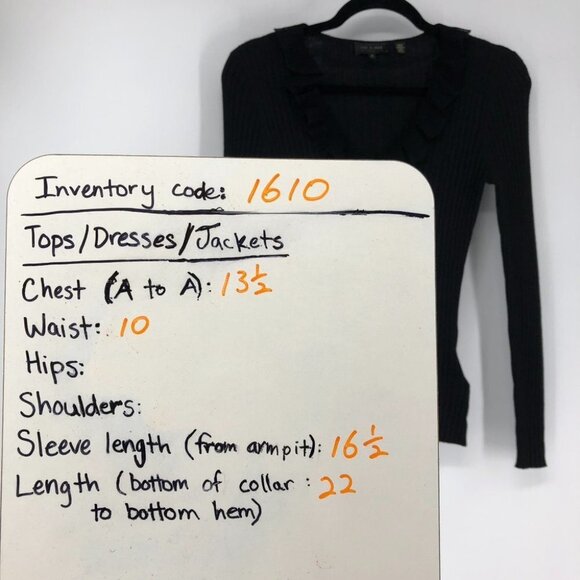 Inventory code: 1610
Tops/Dresses/Jackets
Chest (A to A): 13 1/2
Waist: 10
Hips:
Shoulders:
Sleeve length (from armpit): 16 1/2
Length (bottom of collar : 22
to bottom hem)